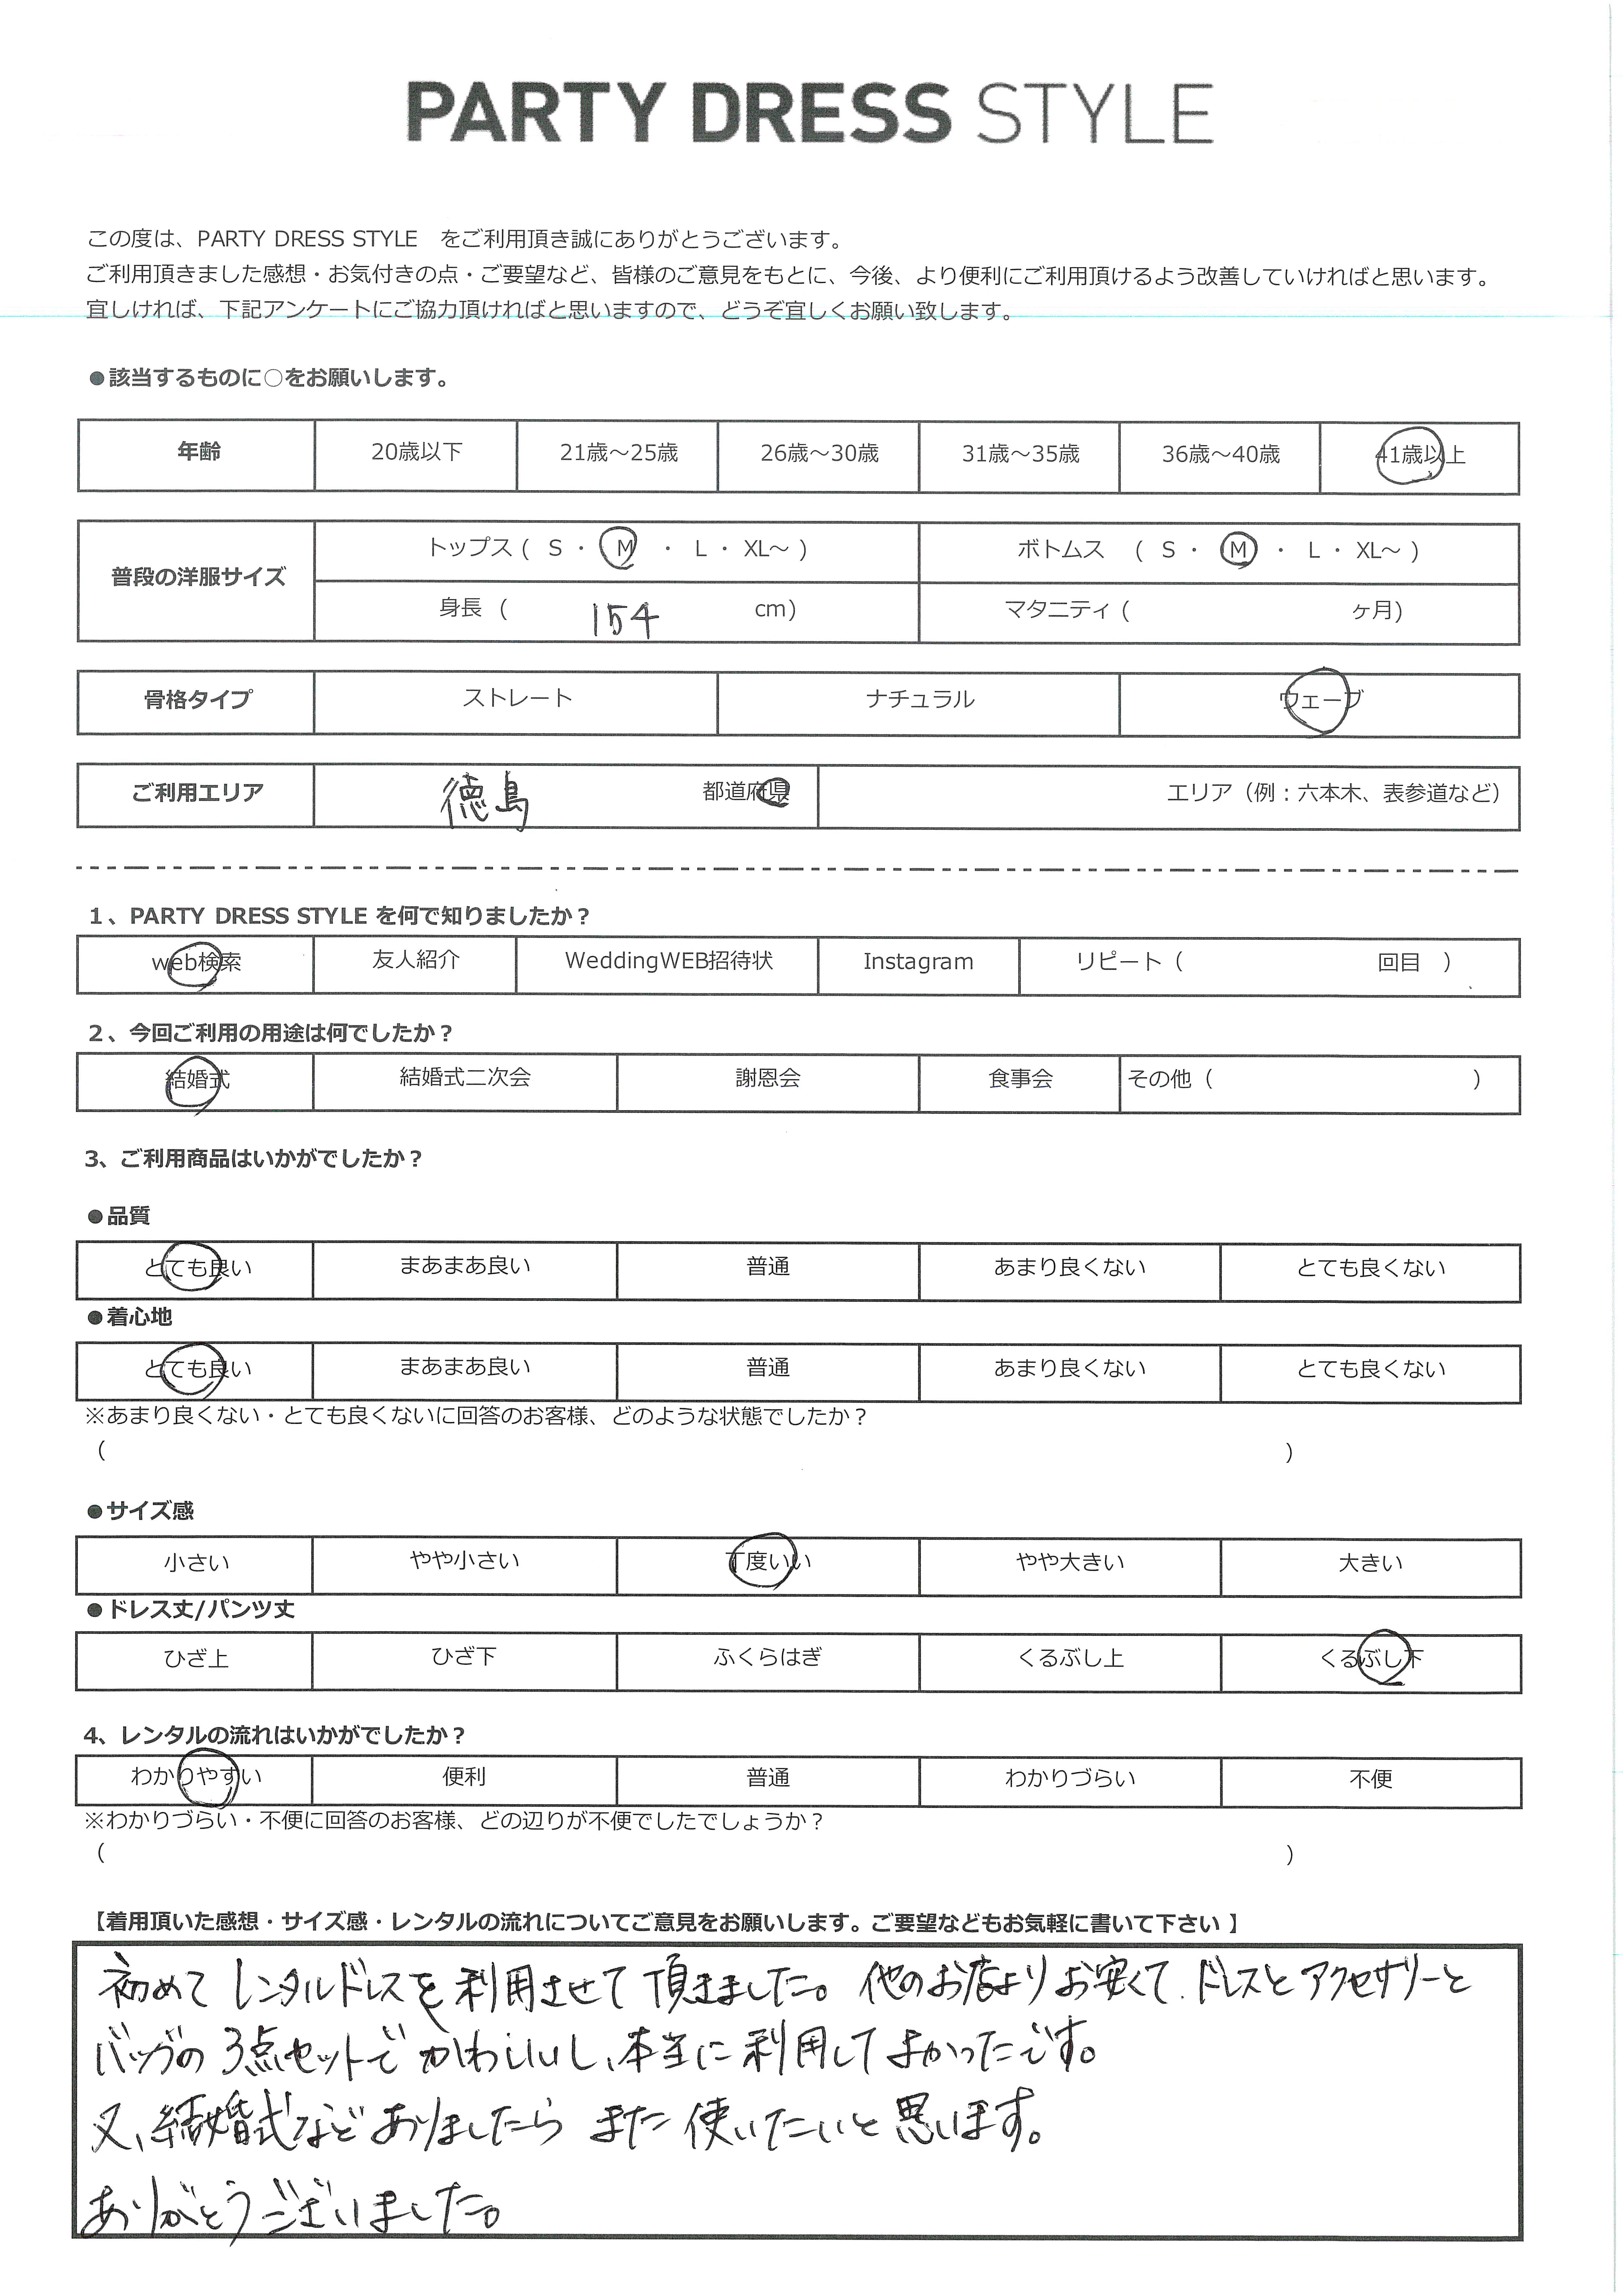 PARTY DRESS STYLE
この度は、PARTY DRESS STYLE をご利用頂き誠にありがとうございます。
ご利用頂きました感想・お気付きの点・ご要望など、皆様のご意見をもとに、今後、より便利にご利用頂けるよう改善していければと思います。
宜しければ、下記アンケートにご協力頂ければと思いますので、どうぞ宜しくお願い致します。
●該当するものに○をお願いします。
年齢 20歳以下 21歳～25歳 26歳～30歳 31歳～35歳 36歳～40歳 41歳以上
普段の洋服サイズ
トップス ( S ・ M ・ L ・ XL～ ) ボトムス ( S ・ M ・ L ・ XL～ )
身長 ( 154 cm) マタニティ ( ヶ月)
骨格タイプ ストレート ナチュラル ウェーブ
ご利用エリア 徳島 都道府県 エリア（例：六本木、表参道など）
1、PARTY DRESS STYLE を何で知りましたか？
web検索 友人紹介 WeddingWEB招待状 Instagram リピート（ 回目 ）
2、今回ご利用の用途は何でしたか？
結婚式 結婚式二次会 謝恩会 食事会 その他（ ）
3、ご利用商品はいかがでしたか？
●品質
とても良い まあまあ良い 普通 あまり良くない とても良くない
●着心地
とても良い まあまあ良い 普通 あまり良くない とても良くない
※あまり良くない・とても良くないに回答のお客様、どのような状態でしたか？
（ ）
●サイズ感
小さい やや小さい 丁度いい やや大きい 大きい
●ドレス丈/パンツ丈
ひざ上 ひざ下 ふくらはぎ くるぶし上 くるぶし下
4、レンタルの流れはいかがでしたか？
わかりやすい 便利 普通 わかりづらい 不便
※わかりづらい・不便に回答のお客様、どの辺りが不便でしたでしょうか？
（ ）
【着用頂いた感想・サイズ感・レンタルの流れについてご意見をお願いします。ご要望などもお気軽に書いて下さい 】
初めて レンタルドレスを 利用させて 頂きました。他のお店より お安くて、ドレスと アクセサリーと
バッグの 3点セットで かわいいし、本当に 利用して よかったです。
又、結婚式など ありましたら また 使いたいと 思います。
ありがとうございました。